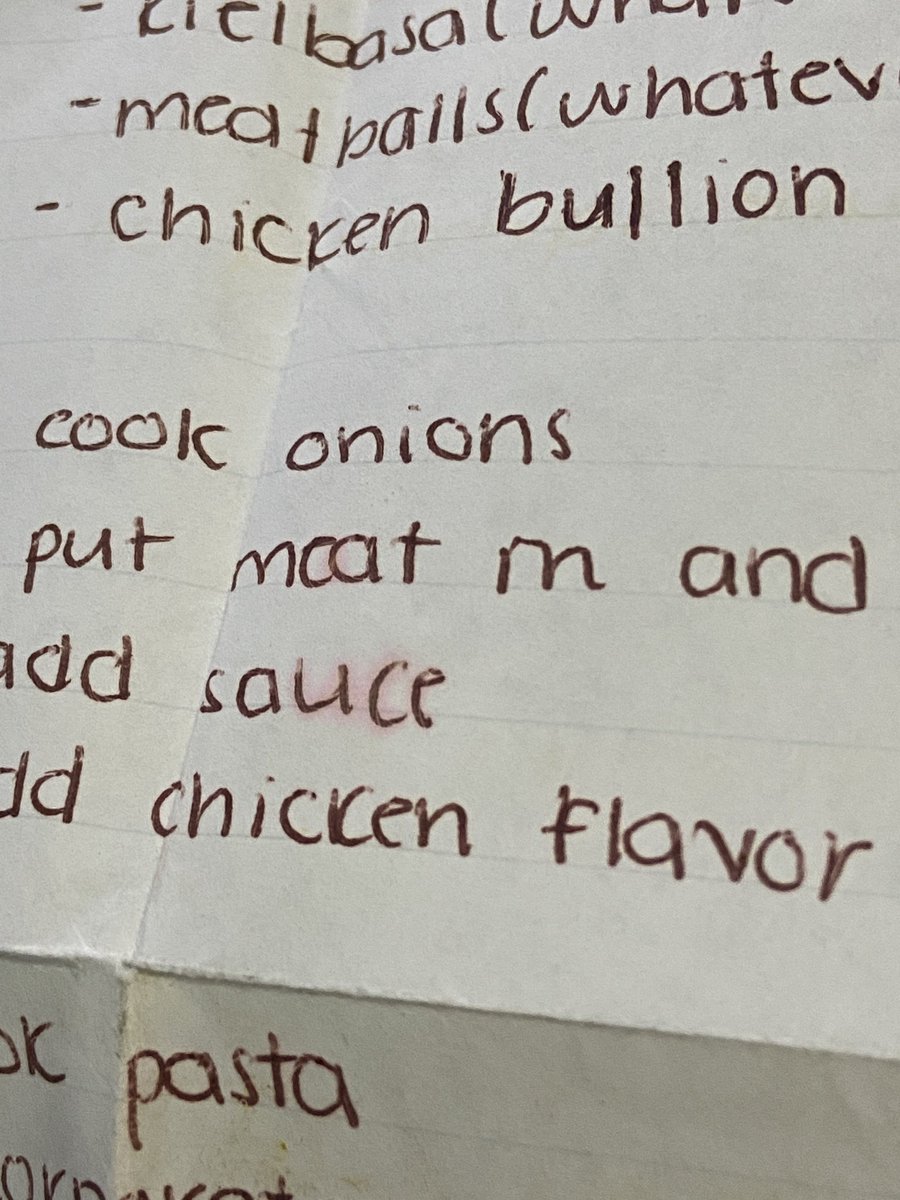 - kielbasa (what
- meatballs (whatev
- chicken bullion
cook onions
put meat in and
add sauce
dd chicken flavor
ok pasta